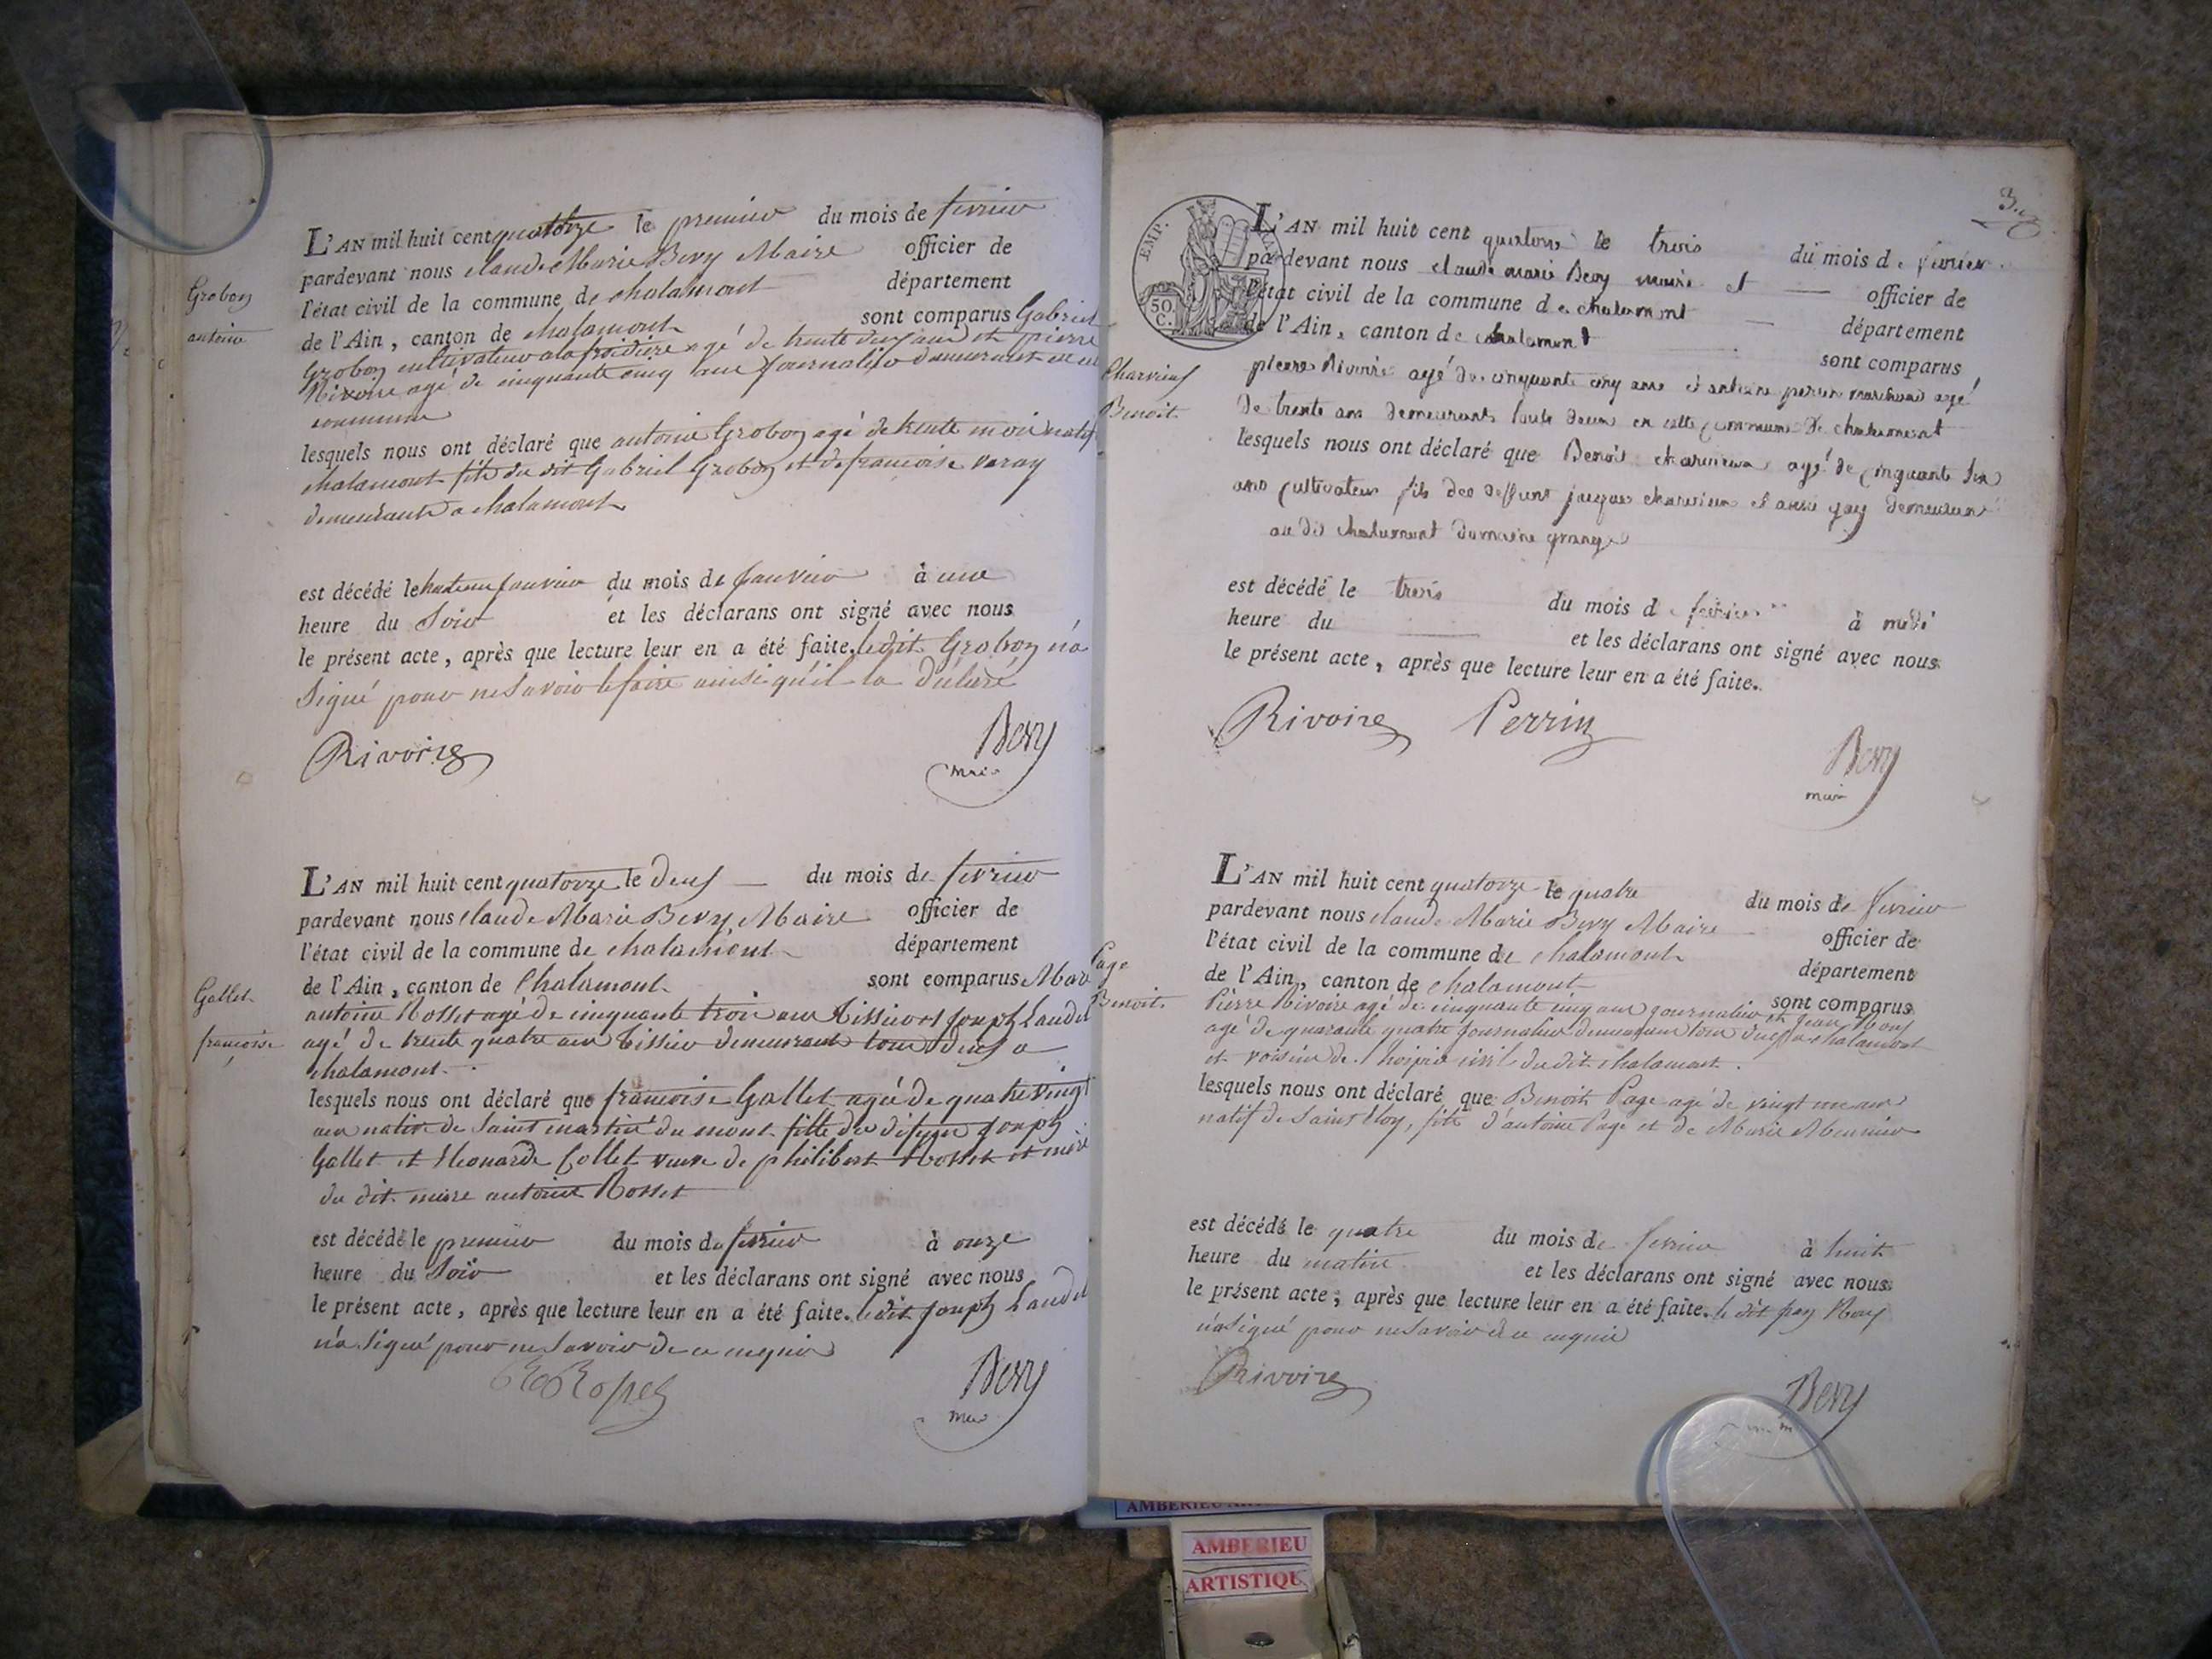 Grobon
antoine
L'AN mil huit cent quatorze le premier du mois de fevrier
pardevant nous claude Marie Bevy Maire officier de
l'état civil de la commune de chalamont département
de l'Ain, canton de chalamont sont comparus Gabriel
Grobon cultivateur a la froidiere agé de trente deux ans et pierre
Rivoire agé de cinquante cinq ans journalier demeurant en cette
commune
lesquels nous ont déclaré que antoine Grobon agé de trente mois natif
chalamont fils du dit Gabriel Grobon et de francoise varay
demeurants a chalamont
est décédé le janvier du mois de janvier à une
heure du Soir et les déclarans ont signé avec nous
le présent acte, après que lecture leur en a été faite. le dit Grobon n'a
Signé pour ne Savoir le faire ainsi qu'il la déclaré
Rivoire
Bevy
maire
Gallet
francoise
L'AN mil huit cent quatorze le deux du mois de fevrier
pardevant nous claude Marie Bevy, Maire officier de
l'état civil de la commune de chalamont département
de l'Ain, canton de Chalamont sont comparus Marc
antoine Rosset agé de cinquante trois ans tissier et joseph Laudet
agé de trente quatre ans tissier demeurant tous deux a
chalamont
lesquels nous ont déclaré que francoise Gallet agée de quatre vingt
ans native de Saint martin du mont fille de defunt joseph
Gallet et Leonarde Collet veuve de philibert Rosset et mère
du dit marc antoine Rosset
est décédé le premier du mois de fevrier à onze
heure du Soir et les déclarans ont signé avec nous
le présent acte, après que lecture leur en a été faite. le dit joseph Laudet
n'a Signé pour ne Savoir de ce enquis
Bevy
maire
3
EMP.
50
C.
Charvieux
Benoit
L'AN mil huit cent quatorze le trois du mois de fevrier
pardevant nous claude marie Bevy maire et officier de
l'état civil de la commune de chalamont département
de l'Ain, canton de chalamont sont comparus
pierre Rivoire agé de cinquante cinq ans et antoine perrin marchand agé
de trente ans demeurants touts deux en cette commune de chalamont
lesquels nous ont déclaré que Benoit charvieux agé de cinquante six
ans cultivateur fils des deffunt jacques charvieux et anne gay demeurant
au dit chalamont domaine grange
est décédé le trois du mois de fevrier à midi
heure du et les déclarans ont signé avec nous
le présent acte, après que lecture leur en a été faite.
Rivoire Perrin
Bevy
maire
Page
Benoit
L'AN mil huit cent quatorze le quatre du mois de fevrier
pardevant nous claude Marie Bevy Maire officier de
l'état civil de la commune de chalamont département
de l'Ain, canton de chalamont sont comparus
Pierre Rivoire agé de cinquante cinq ans journalier et jean Roux
agé de quarante quatre journalier demeurant tous deux a chalamont
et voisins de l'hospice civil du dit chalamont.
lesquels nous ont déclaré que Benoit Page agé de vingt un ans
natif de Saint Eloy, fils d'antoine Page et de Marie Meunier
est décédé le quatre du mois de fevrier à huit
heure du matin et les déclarans ont signé avec nous
le présent acte, après que lecture leur en a été faite. le dit jean Roux
n'a Signé pour ne Savoir de ce enquis
Rivoire
Bevy
AMBERIEU
AMBERIEU
ARTISTIQU